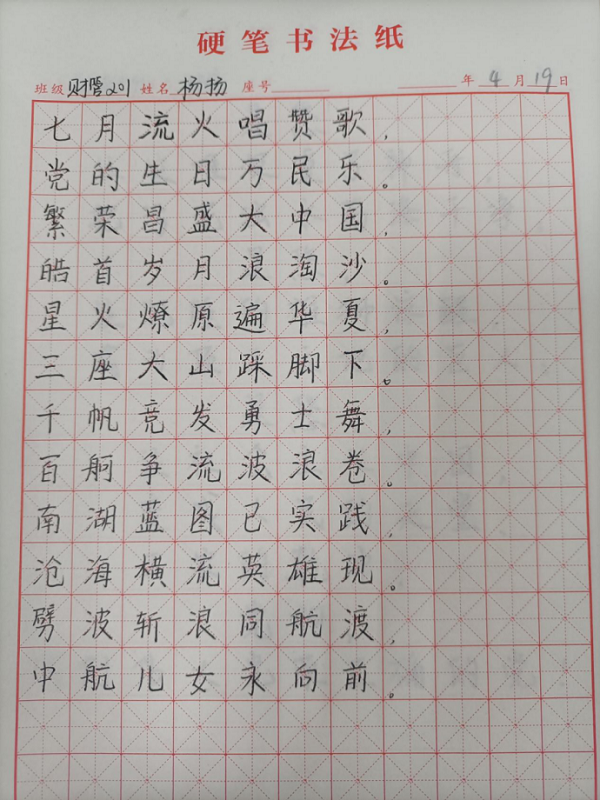 硬笔书法纸
班级 财管201 姓名 杨扬 座号 年 4 月 19 日
七月流火唱赞歌，
党的生日万民乐。
繁荣昌盛大中国，
皓首岁月浪淘沙。
星火燎原遍华夏，
三座大山踩脚下。
千帆竞发勇士舞，
百舸争流波浪卷。
南湖蓝图已实践，
沧海横流英雄现。
劈波斩浪同航渡，
中航儿女永向前。